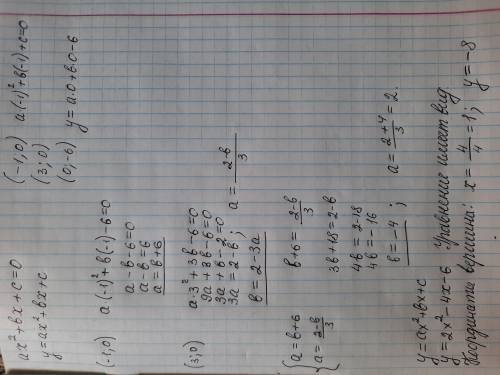 ax²+bx+c=0
y=ax²+bx+c
(-1;0) a(-1)²+b(-1)+c=0
(3;0)
(0;-6) y=a·0+b·0-6
(-1;0) a(-1)²+b(-1)-6=0
a-b-6=0
a-b=6
a=b+6
(3;0) a·3²+3b-6=0
9a+3b-6=0
3a+b-2=0
3a=2-b;
b=2-3a
a=\frac{2-b}{3}
{a=b+6
a=\frac{2-b}{3}
b+6=\frac{2-b}{3}
3b+18=2-b
4b=2-18
4b=-16
b=-4;
a=\frac{2+4}{3}=2.
y=ax²+bx+c
y=2x²-4x-6 Уравнение имеет вид
Координаты вершина: x=\frac{4}{4}=1; y=-8